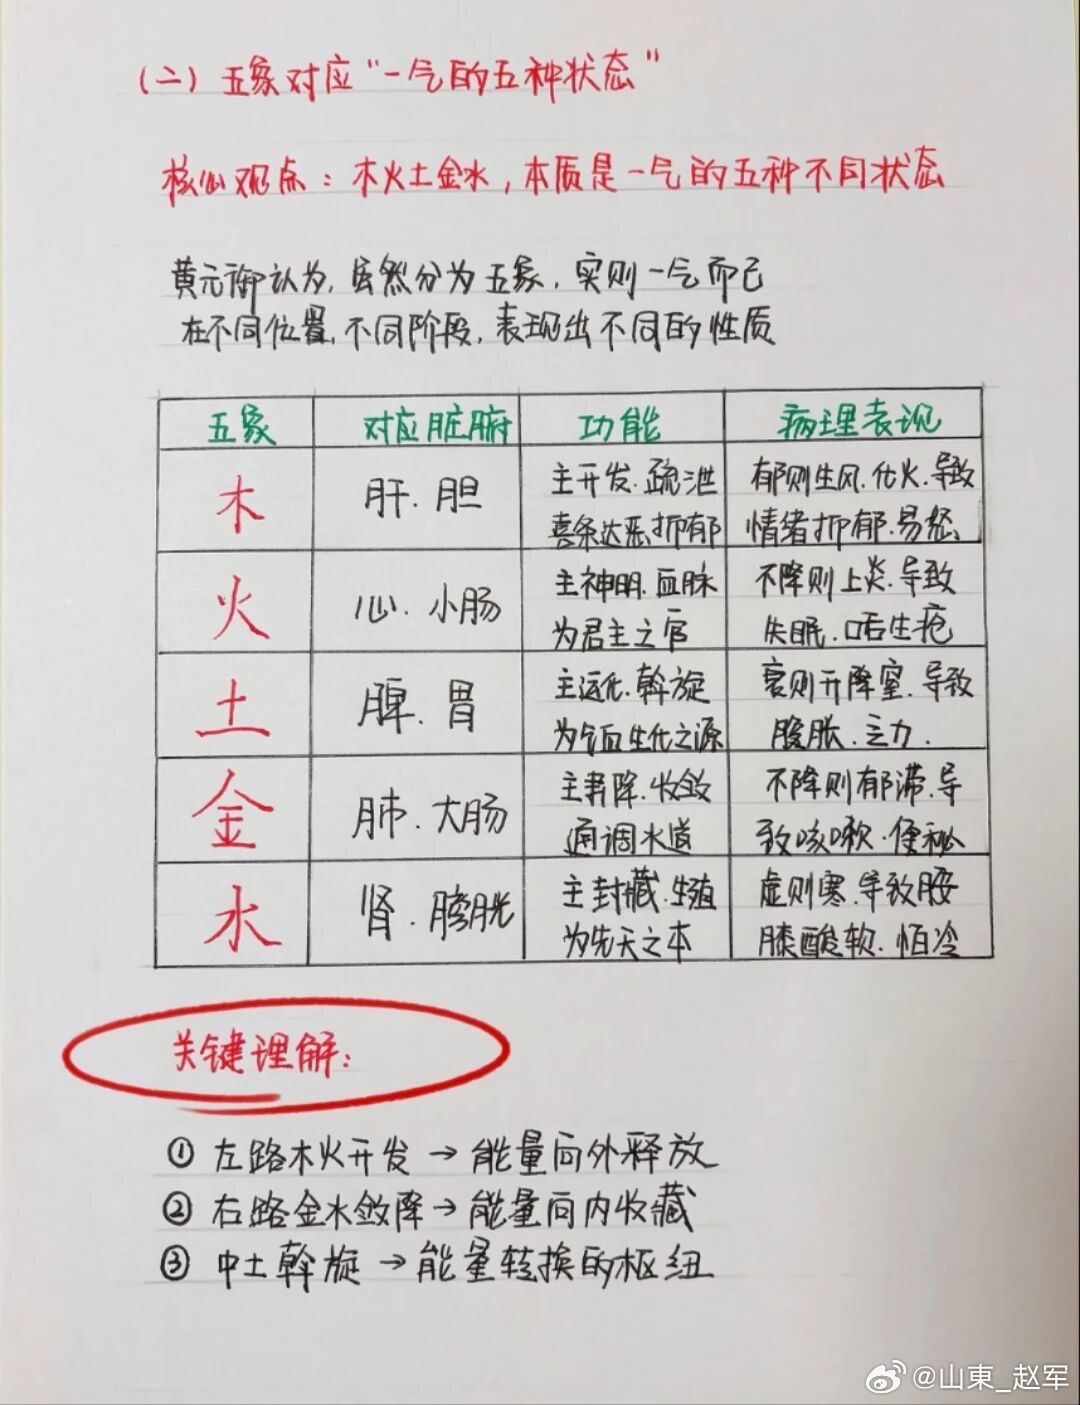 (二) 五象对应“一气的五种状态”
核心观点：木火土金水，本质是一气的五种不同状态
黄元御认为，虽然分为五象，实则一气而已
在不同位置，不同阶段，表现出不同的性质
五象 对应脏腑 功能 病理表现
木 肝、胆 主开发、疏泄 郁则生风、化火、导致
喜条达恶抑郁 情绪抑郁、易怒、
火 心、小肠 主神明、血脉 不降则上炎、导致
为君主之官 失眠、口舌生疮
土 脾、胃 主运化、斡旋 衰则升降窒、导致
为气血生化之源 腹胀、乏力、
金 肺、大肠 主肃降、收敛 不降则郁滞、导
通调水道 致咳嗽、便秘
水 肾、膀胱 主封藏、生殖 虚则寒、导致腰
为先天之本 膝酸软、怕冷
关键理解：
① 左路木火开发→能量向外释放
② 右路金水敛降→能量向内收藏
③ 中土斡旋→能量转换的枢纽
@山東_赵军